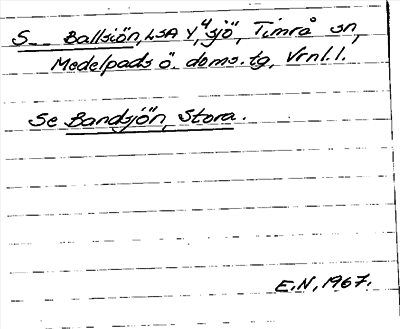 S-- Ballsjön, LSA Y, 4 sjö, Timrå sn,
Medelpads ö. doms.tg, Vrnl.l.
Se Bandsjön, Stora.
E.N, 1967.